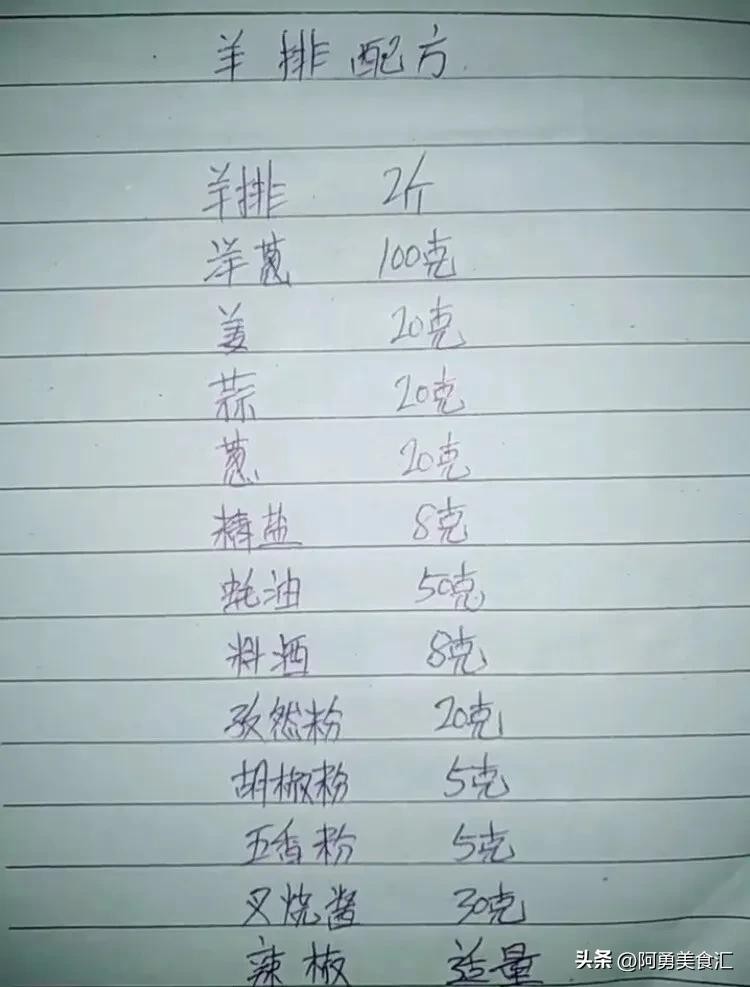 羊排配方
羊排 2斤
洋葱 100克
姜 20克
蒜 20克
葱 20克
椿盐 8克
蚝油 50克
料酒 8克
孜然粉 20克
胡椒粉 5克
五香粉 5克
叉烧酱 30克
辣椒 适量
头条 @阿勇美食汇